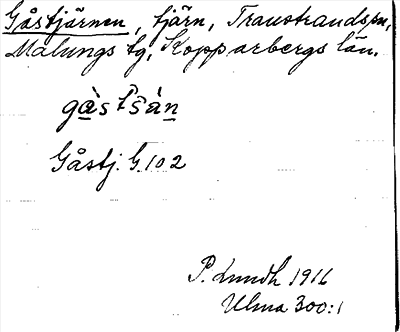 Gåstjärnen, tjärn, Transtrands sn,
Malungs tg, Kopparbergs län.
gàstŝàn
Gåstj. G.102
P. Lundh 1916
Ulma 300:1